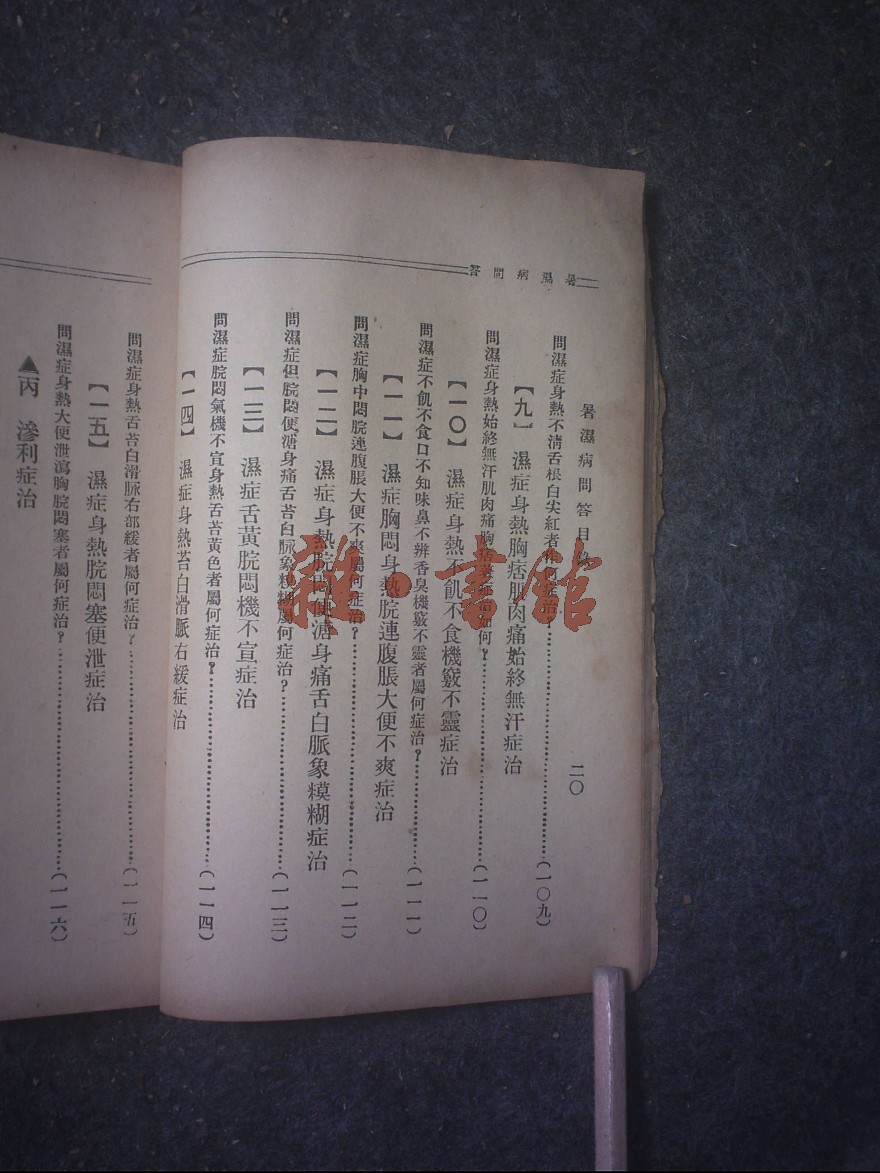 暑濕病問答
暑濕病問答目
二〇
問濕症身熱不淸舌根白尖紅者作何症治?(一〇九)
【九】 濕症身熱胸痞肌肉痛始終無汗症治
問濕症身熱始終無汗肌肉痛胸痞者症治如何?(一一〇)
【一〇】 濕症身熱不飢不食機竅不靈症治
問濕症不飢不食口不知味鼻不辨香臭機竅不靈者屬何症治?(一一一)
【一一】 濕症胸悶身熱脘連腹脹大便不爽症治
問濕症胸中悶脘連腹脹大便不爽屬何症治?(一一二)
【一二】 濕症身熱脘悶便溏身痛舌白脈象糢糊症治
問濕症但脘悶便溏身痛舌苔白脉象糢糊屬何症治?(一一三)
【一三】 濕症舌黃脘悶機不宣症治
問濕症脘悶氣機不宣身熱舌苔黃色者屬何症治?(一一四)
【一四】 濕症身熱苔白滑脈右緩症治
問濕症身熱舌苔白滑脉右部緩者屬何症治?(一一五)
【一五】 濕症身熱脘悶塞便泄症治
問濕症身熱大便泄瀉胸脘悶塞者屬何症治?(一一六)
▲丙 滲利症治
雜·書館